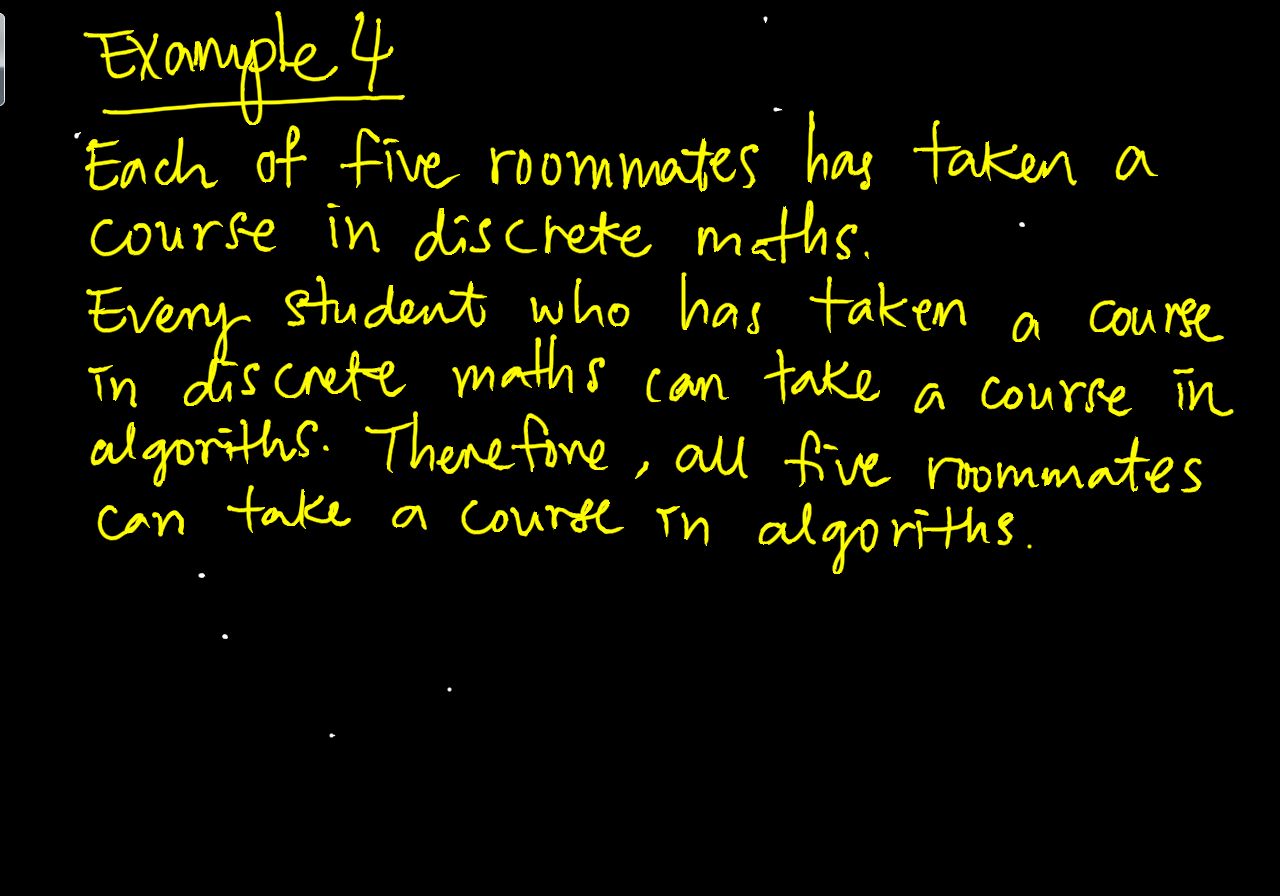 Example 4
Each of five roommates has taken a
course in discrete maths.
Every student who has taken a course
in discrete maths can take a course in
algoriths. Therefore, all five roommates
can take a course in algoriths.